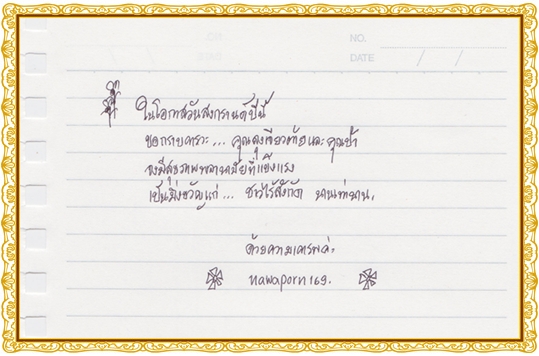 NO.
DATE / /
ในโอกาสวันสงกรานต์ปีนี้
ขอกราบคารวะ... คุณลุงเขียวต้อและคุณป้า
จงมีสุขภาพพลานามัยที่แข็งแรง
เป็นมิ่งขวัญแก่... ชาวไร้สังกัด นานเท่านาน.
ด้วยความเคารพค่ะ
nawaporn169.